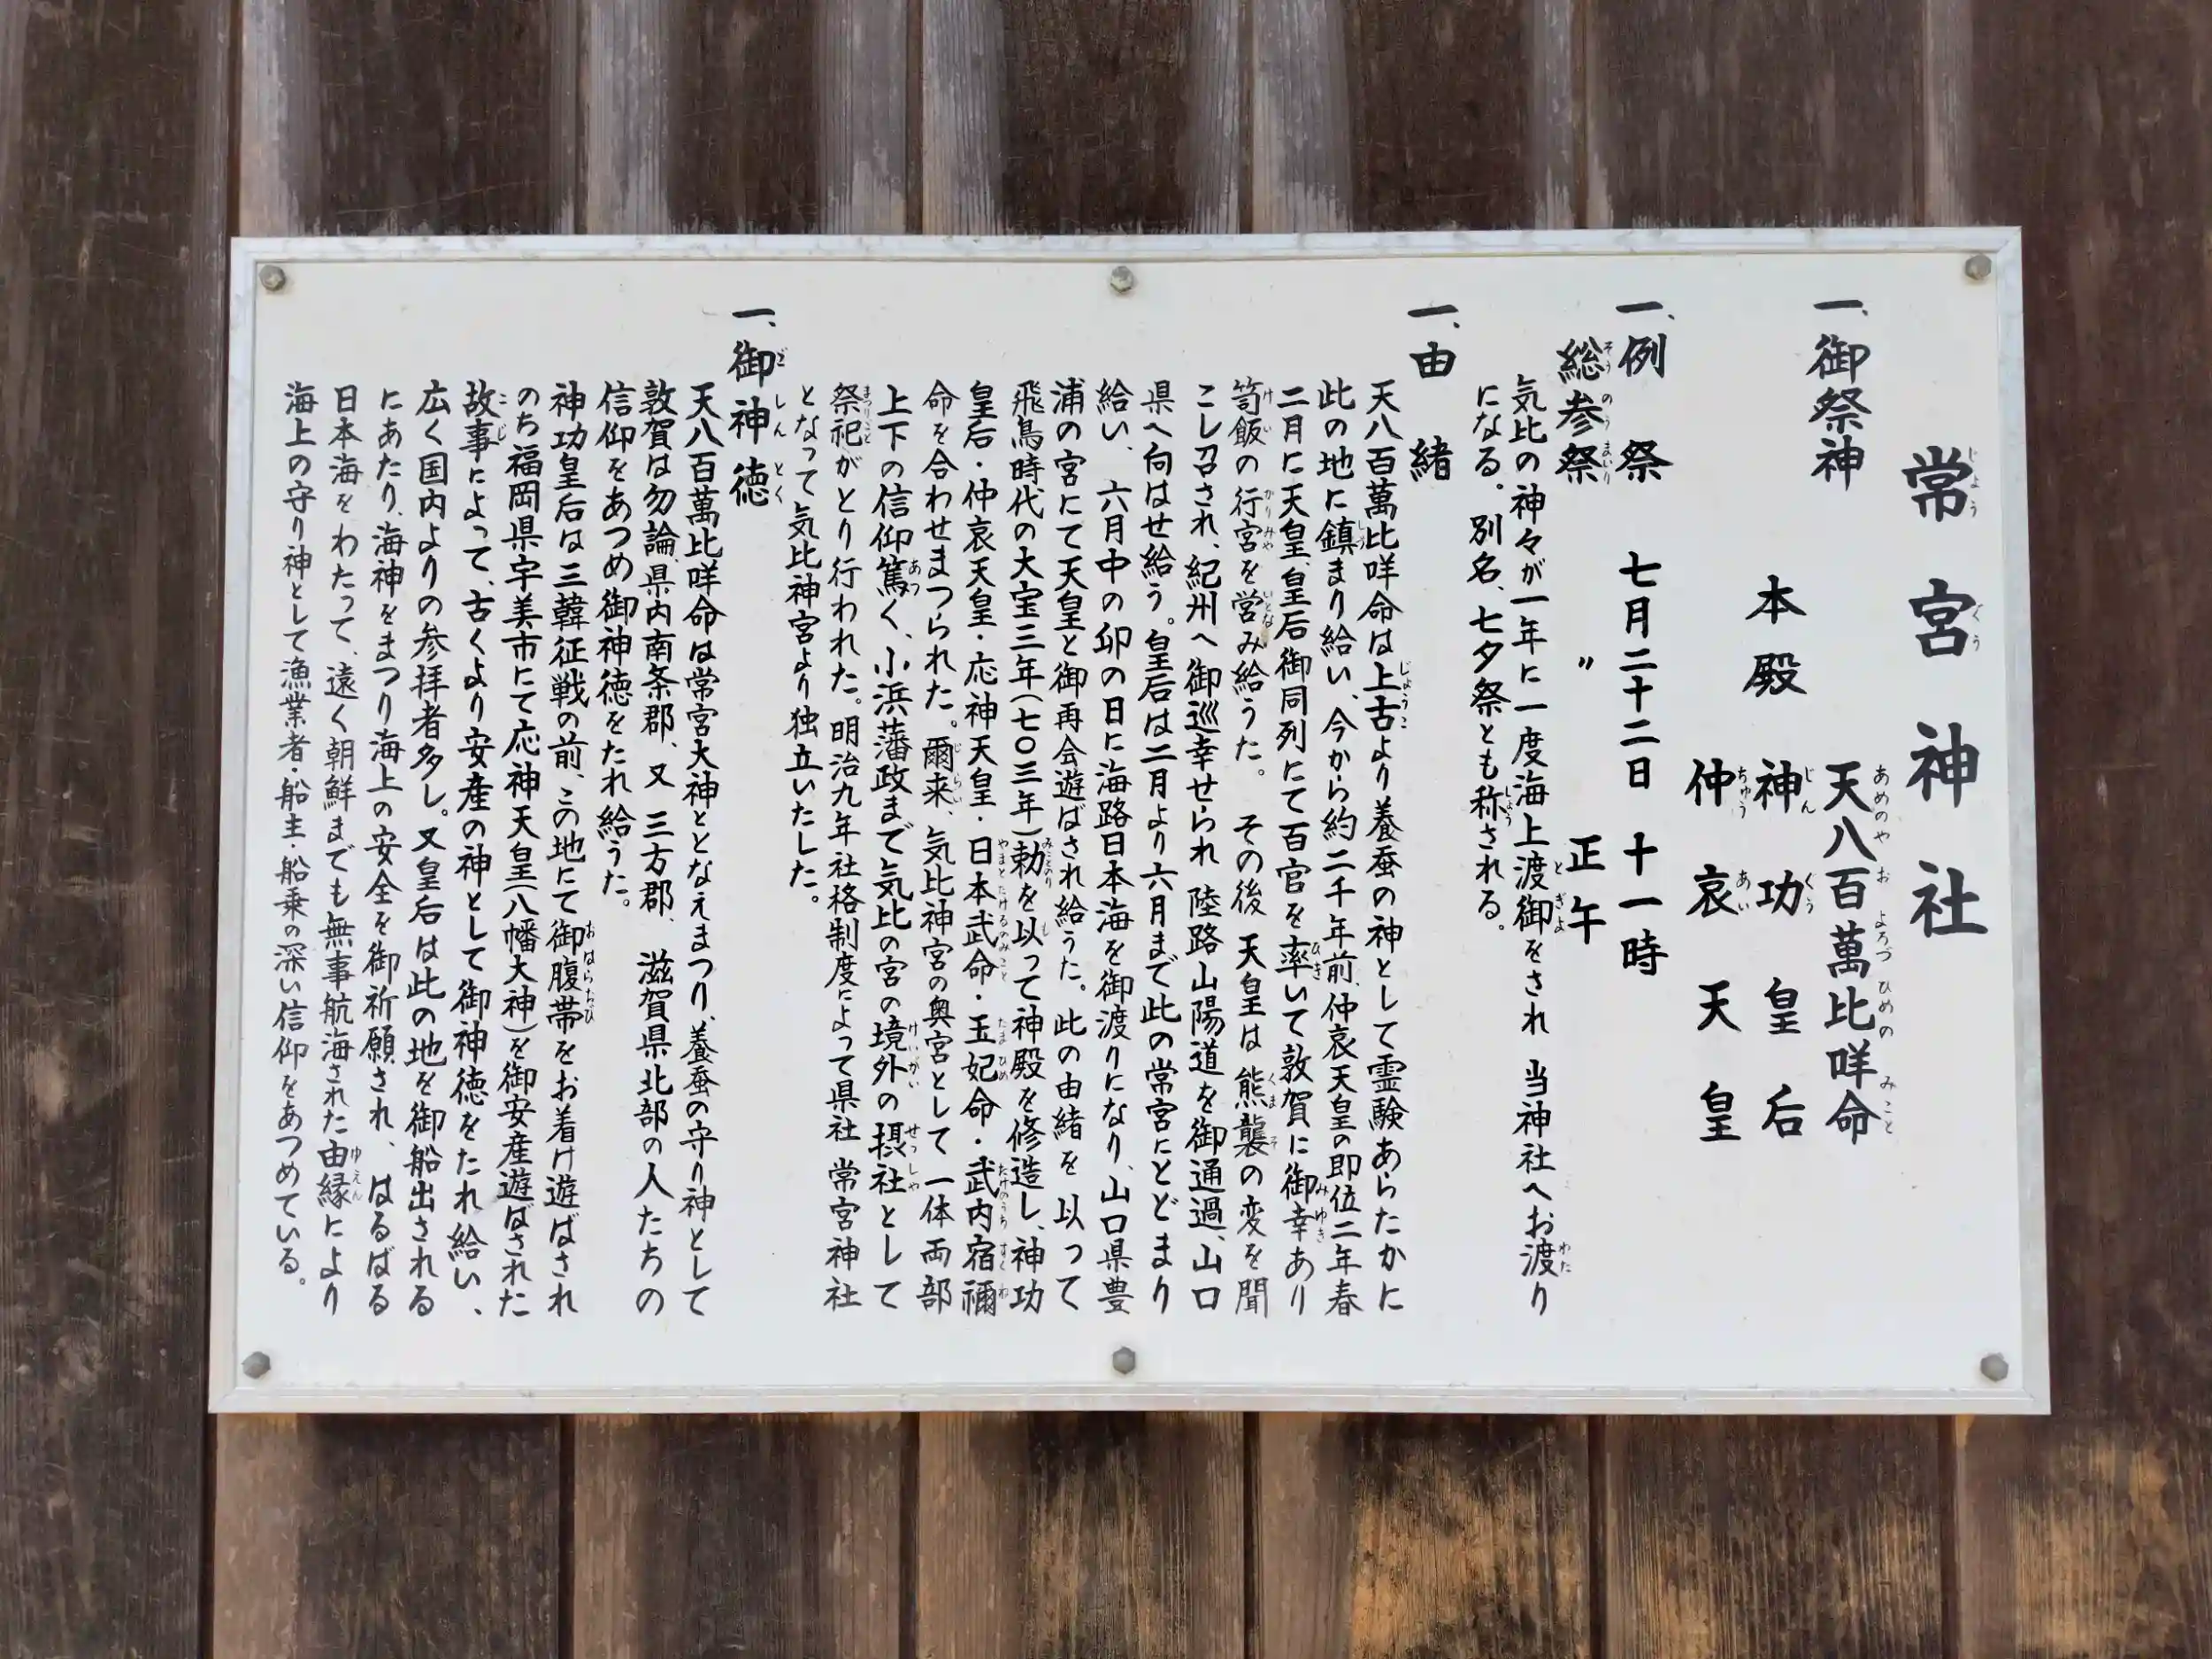 常宮神社
一、御祭神
天八百萬比咩命
本殿 神功皇后
仲哀天皇
一、例祭 七月二十二日 十一時
総参祭 〃 正午
気比の神々が一年に一度海上渡御をされ 当神社へお渡り
になる。別名、七夕祭とも称される。
一、由緒
天八百萬比咩命は上古より養蚕の神として霊験あらたかに
此の地に鎮まり給い、今から約二千年前、仲哀天皇の即位二年春
二月に天皇、皇后御同列にて百官を率いて敦賀に御幸あり
笥飯の行宮を営み給うた。その後 天皇は熊襲の変を聞
こし召され、紀州へ御巡幸せられ 陸路山陽道を御通過、山口
県へ向はせ給う。皇后は二月より六月まで此の常宮にとどまり
給い、六月中の卯の日に海路日本海を御渡りになり、山口県豊
浦の宮にて天皇と御再会遊ばされ給うた。此の由緒を以って
飛鳥時代の大宝三年(七〇三年)勅を以って神殿を修造し、神功
皇后・仲哀天皇・応神天皇・日本武命・玉妃命・武内宿禰
命を合わせまつられた。爾来、気比神宮の奥宮として一体両部
上下の信仰篤く、小浜藩政まで気比の宮の境外の摂社として
祭祀がとり行われた。明治九年社格制度によって県社 常宮神社
となって気比神宮より独立いたした。
一、御神徳
天八百萬比咩命は常宮大神ととなえまつり、養蚕の守り神として
敦賀は勿論、県内南条郡、又 三方郡、滋賀県北部の人たちの
信仰をあつめ御神徳をたれ給うた。
神功皇后は三韓征戦の前、この地にて御腹帯をお着け遊ばされ
のち福岡県宇美市にて応神天皇(八幡大神)を御安産遊ばされた
故事によって、古くより安産の神として御神徳をたれ給い、
広く国内よりの参拝者多し。又皇后は此の地を御船出される
にあたり、海神をまつり海上の安全を御祈願され、はるばる
日本海をわたって、遠く朝鮮までも無事航海された由縁により
海上の守り神として漁業者・船主・船乗の深い信仰をあつめている。